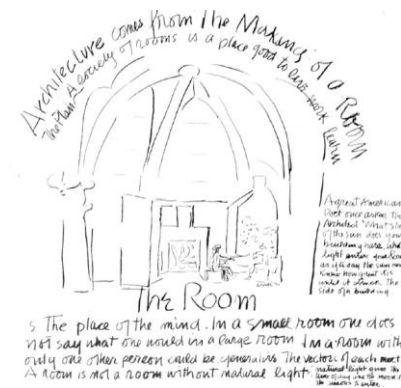 Architecture comes from The Making of a Room
The Plan A society of rooms is a place good to live work learn
A great American
Poet once asked the
Architect What
of the sun does your
building have. What
light enters your Room
as if to say the sun never
knew how great it is
until it struck the
side of a building.
The Room
s The place of the mind. In a small room one does
not say what one would in a large room In a room with
only one other person could be generative The vectors of each meet
A room is not a room without natural light.
natural light gives the
time of day and the mood of